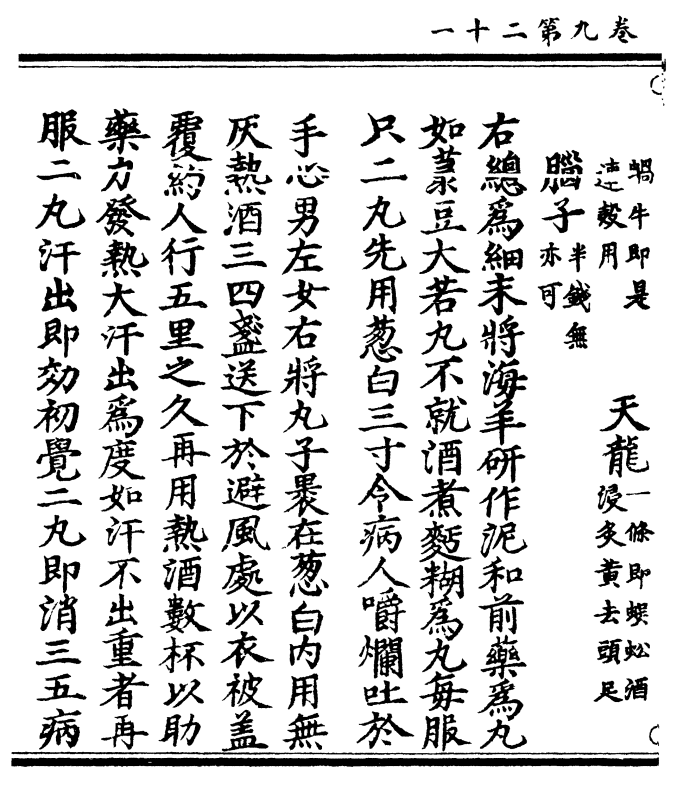 卷九第二十一
蝸牛即是
連殼用
天龍一條即蜈蚣酒
浸炙黃去頭足
腦子半錢無
亦可
右總為細末將海羊研作泥和前藥為丸
如菉豆大若丸不就酒煮麪糊為丸每服
只二丸先用葱白三寸令病人嚼爛吐於
手心男左女右將丸子裹在葱白内用無
灰熱酒三四盞送下於避風處以衣被盖
覆約人行五里之久再用熱酒數杯以助
藥力發熱大汗出為度如汗不出重者再
服二丸汗出即効初覺二丸即消三五病